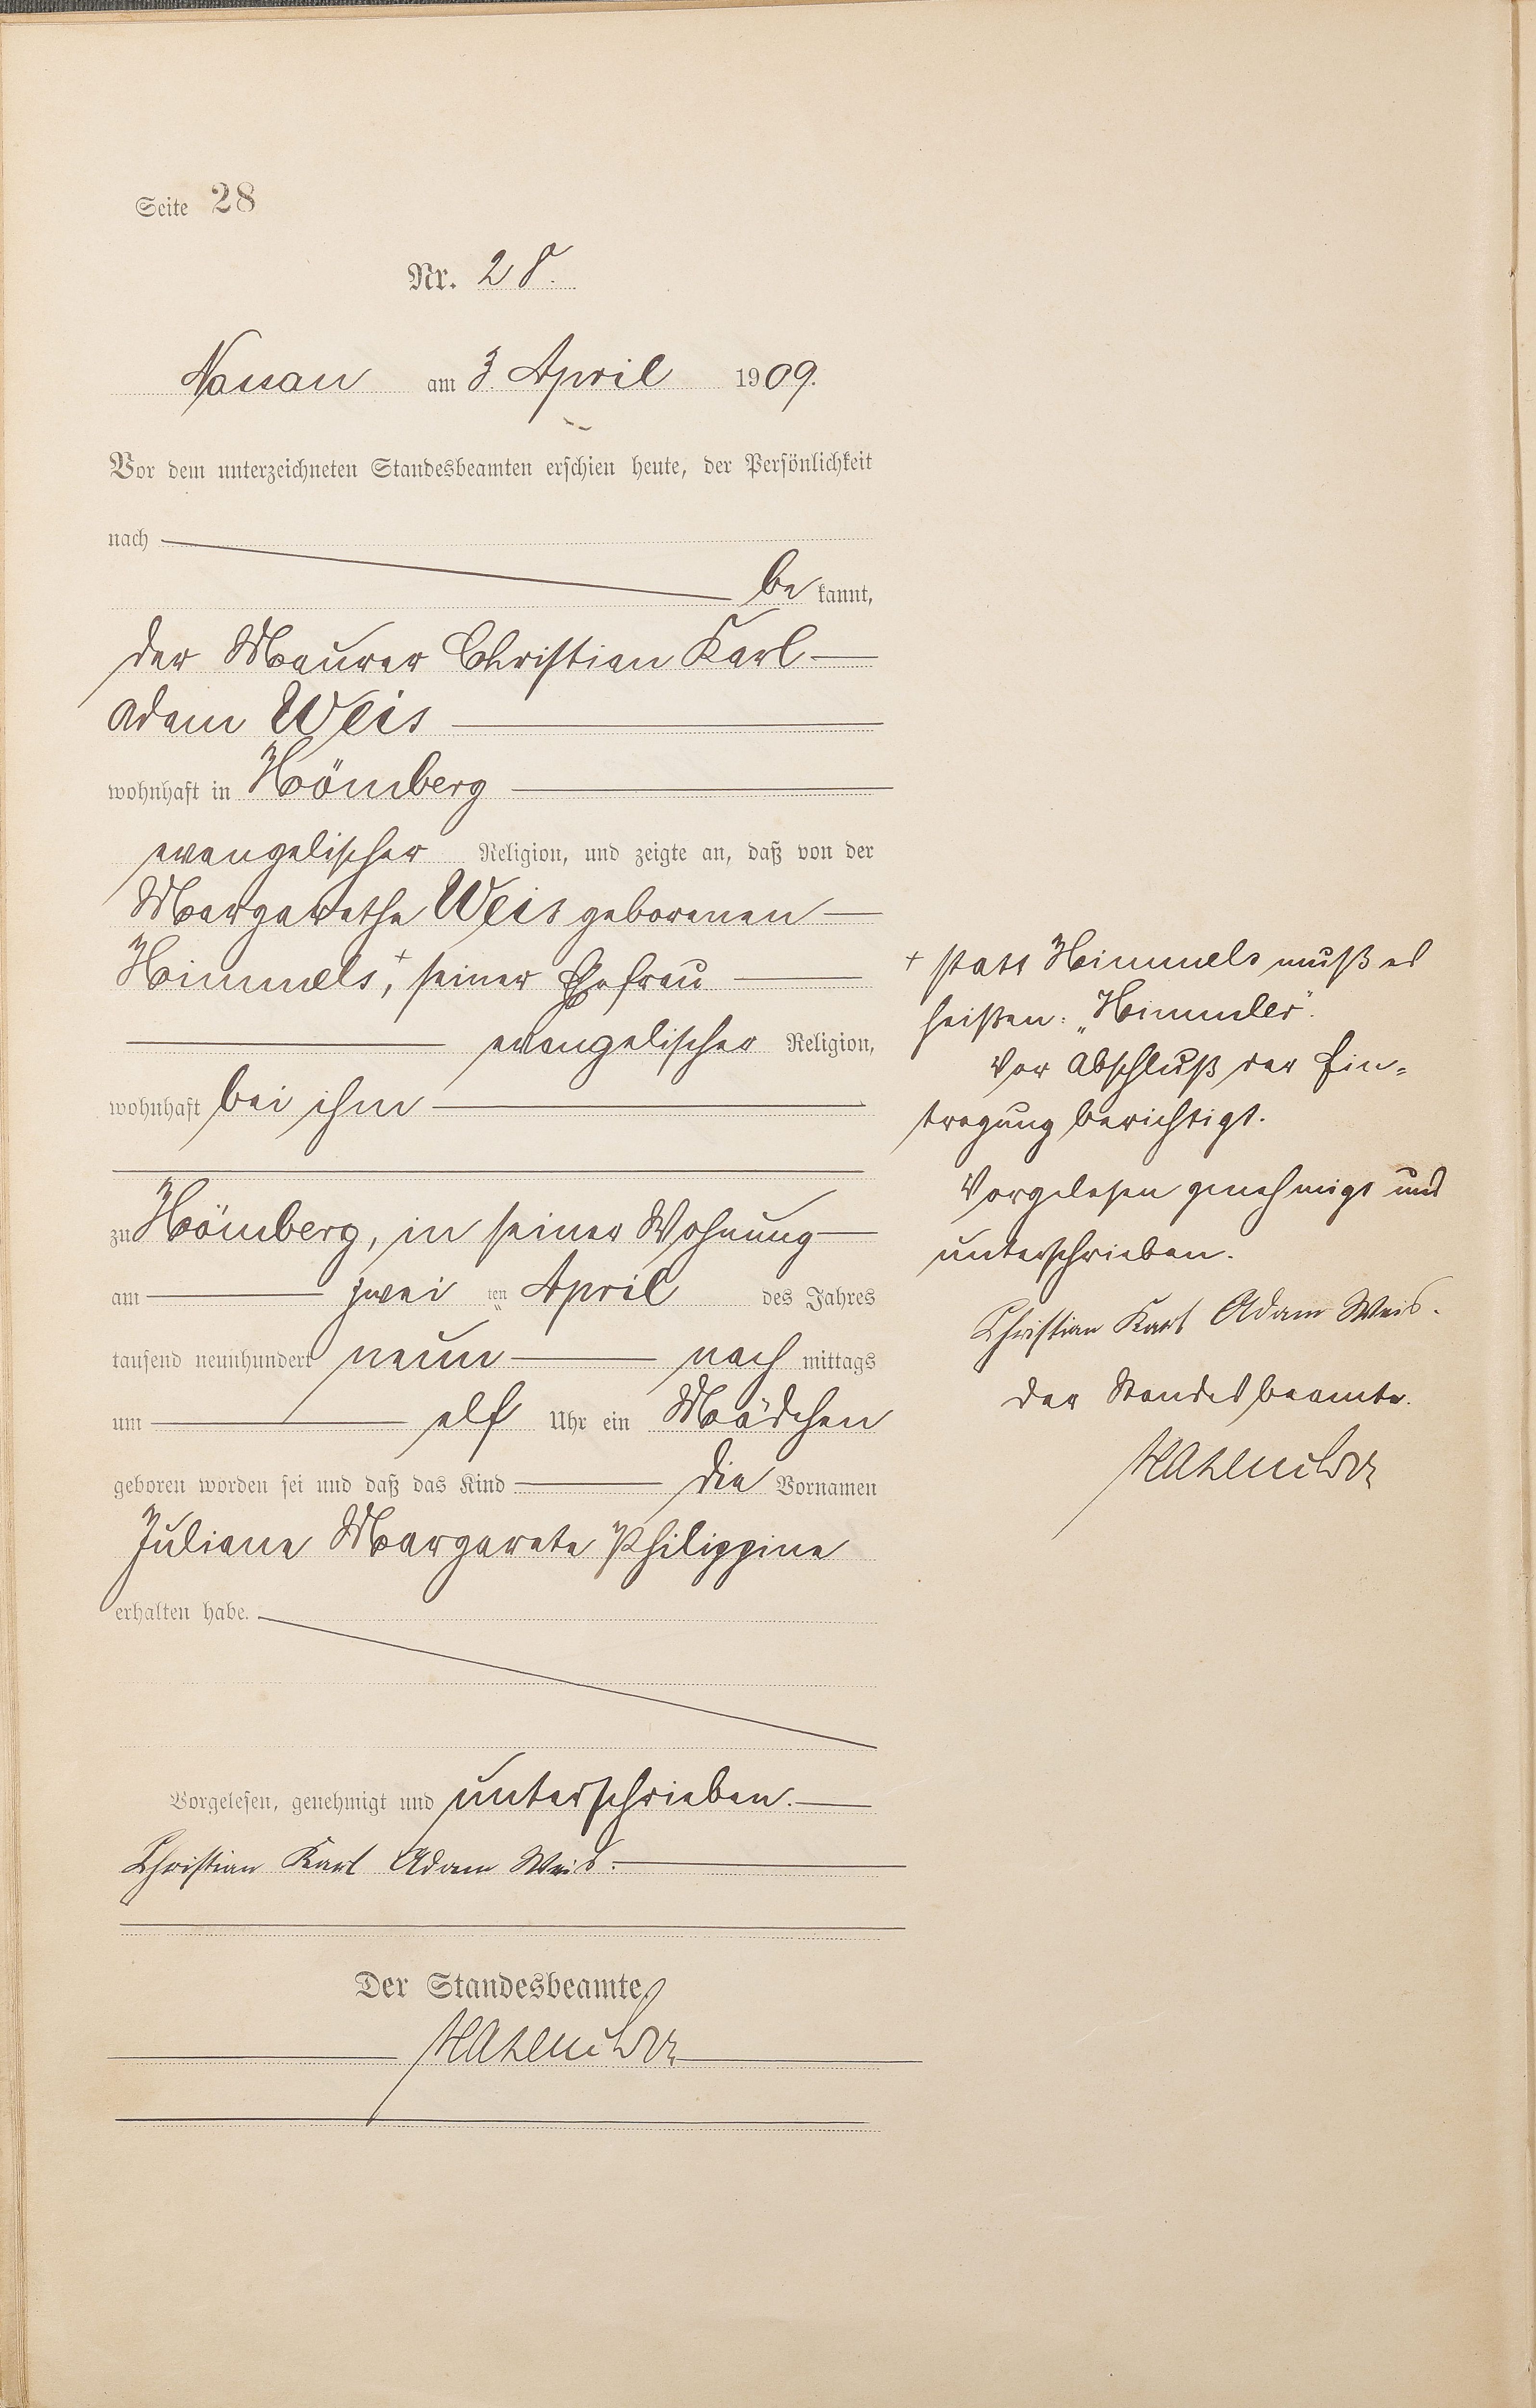 Seite 28
Nr. 28.
Nassau am 3. April 1909.
Vor dem unterzeichneten Standesbeamten erschien heute, der Persönlichkeit
nach
be kannt,
der Maurer Christian Karl
Adam Weis
wohnhaft in Hömberg
evangelischer Religion, und zeigte an, daß von der
Margarethe Weis geborenen
Himmels,+ seiner Ehefrau
evangelischer Religion,
wohnhaft bei ihm
zu Hömberg, in seiner Wohnung
am zwei ten April des Jahres
tausend neunhundert neun nach mittags
um elf Uhr ein Mädchen
geboren worden sei und daß das Kind die Vornamen
Juliane Margarete Philippine
erhalten habe.
Vorgelesen, genehmigt und unterschrieben.
Christian Karl Adam Weis.
Der Standesbeamte
+ statt Himmels muß es
heißen: „Himmler".
Vor Abschluß der Ein-
tragung berichtigt.
Vorgelesen genehmigt und
unterschrieben.
Christian Karl Adam Weis.
Der Standesbeamte.